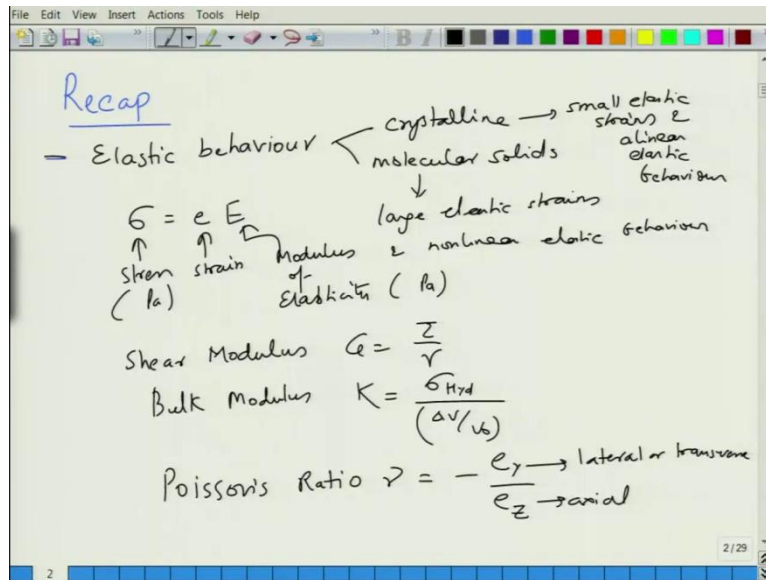 File Edit View Insert Actions Tools Help
B I
Recap
- Elastic behaviour
crystalline → small elastic
strains &
a linear
elastic
behaviour
molecular solids
↓
large elastic strains
& nonlinear elastic behaviour
σ = e E
↑ ↑
stress strain Modulus
of
Elasticity (Pa)
(Pa)
Shear Modulus G = τ/γ
Bulk Modulus K = σHyd/(ΔV/V₀)
Poisson's Ratio ν = - eᵧ/e_z
→ lateral or transverse
→ axial
2 / 29
2